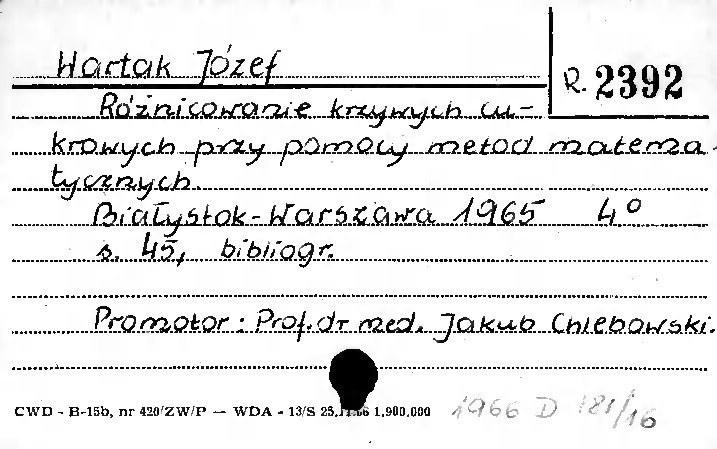 Wartak Józef
R. 2392
Różnicowanie krzywych cu-
krowych przy pomocy metod matema-
tycznych.
Białystok-Warszawa 1965 4°
s. 45, bibliogr.
Promotor: Prof. dr med. Jakub Chlebowski.
CWD - B-15b, nr 420/ZW/P — WDA - 13/S 1,900,000
1966 D 181/16